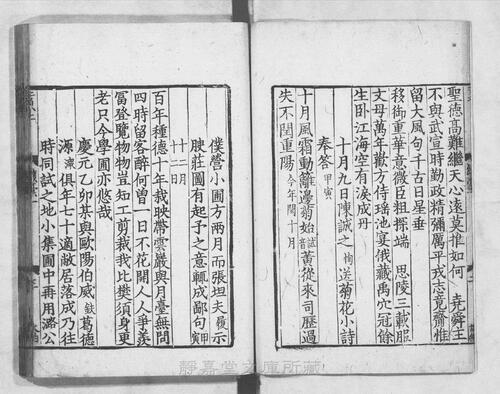 聖德高難繼天心遠莫推如何　堯舜主
不與武宣時勤政精彌厲平戎志竟齋惟
留大風句千古日星垂
移御重華意微臣粗探端　思陵三載服
文母萬年歡方侍瑤池宴俄藏禹穴冠餘
生卧江海空有淚成丹
十月九日陳誠之惸送菊花小詩
奉答甲寅
十月風霜動籬邊菊始黃從來司歷過
失不閏重陽今年閏十月
僕營小圃方兩月而張坦夫履示
腴莊圖有起予之意輒成鄙句甲寅
廿二日
百年種德十年栽映帶雲嚴與月臺無間
四時留客醉何曾一日不花開人人爭羨
富登覽物物豈知工剪裁我比樊須身更
老只今學圃亦悠哉
慶元乙卯某與歐陽伯威鈇葛德
源濙俱年七十適敝居落成乃往
時同試之地小集圃中再用潞公
靜嘉堂文庫所藏